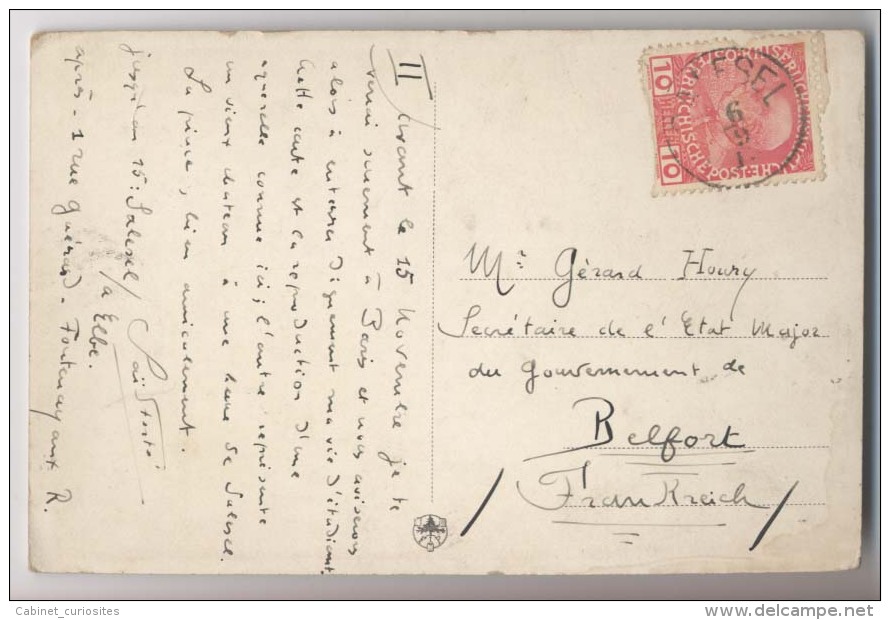 II avant le 15 Novembre je te
verrai sûrement à Paris et nous aviserons
alors à enterrer dignement ma vie d'étudiant.
Cette carte est la reproduction d'une
aquarelle comme ici ; l'autre représente
un vieux chateau à une heure de Salesel.
La pince, bien amicalement.
jusqu'au 15 : Salesel / a Elbe.
après - 1 rue Guérard - Fontenay aux R.
SALESEL
6
10 HELLER 10
ÖSTERREICHISCHE POST
Mr Gérard Houry
Secrétaire de l'Etat Major
du Gouvernement de
Belfort
/ Frankreich /
Cabinet_curiosites
delcampe.net